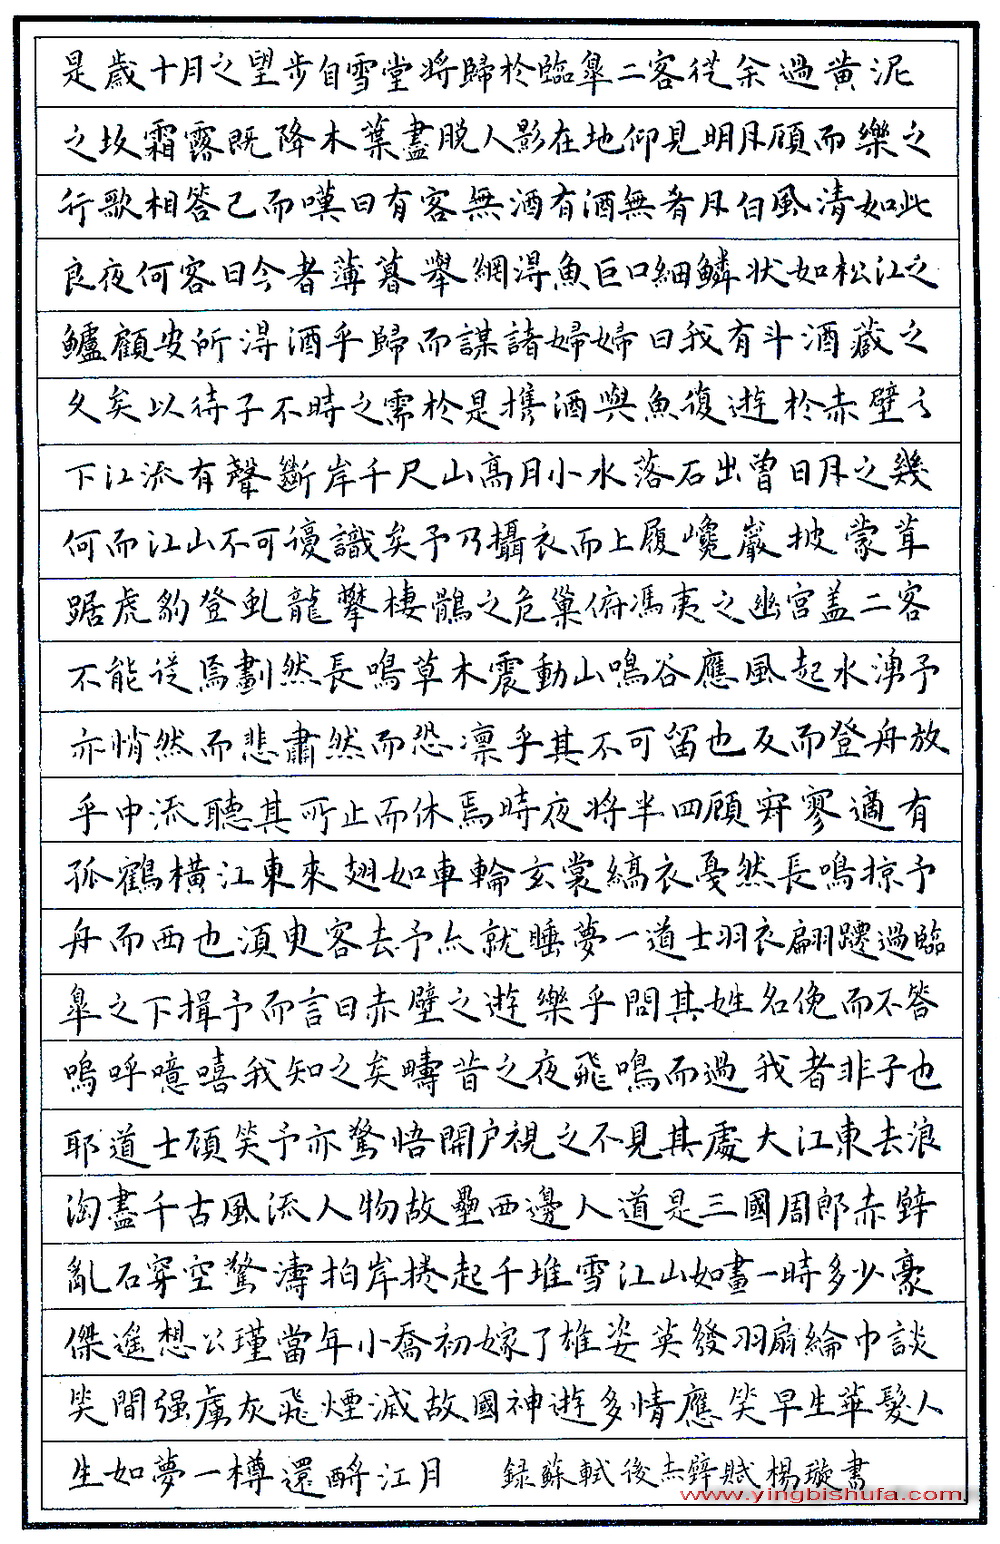 是歲十月之望步自雪堂將歸於臨皐二客從余過黃泥
之坂霜露既降木葉盡脫人影在地仰見明月顧而樂之
行歌相答已而嘆曰有客無酒有酒無肴月白風清如此
良夜何客曰今者薄暮舉網得魚巨口細鱗狀如松江之
鱸顧安所得酒乎歸而謀諸婦婦曰我有斗酒藏之
久矣以待子不時之需於是携酒與魚復遊於赤壁之
下江流有聲斷岸千尺山高月小水落石出曾日月之幾
何而江山不可復識矣予乃攝衣而上履巉巖披蒙茸
踞虎豹登虬龍攀棲鶻之危巢俯馮夷之幽宮盖二客
不能從焉劃然長鳴草木震動山鳴谷應風起水湧予
亦悄然而悲肅然而恐凛乎其不可留也反而登舟放
乎中流聽其所止而休焉時夜將半四顧寂寥適有
孤鶴橫江東來翅如車輪玄裳縞衣戛然長鳴掠予
舟而西也須臾客去予亦就睡夢一道士羽衣翩躚過臨
皐之下揖予而言曰赤壁之遊樂乎問其姓名俛而不答
嗚呼噫嘻我知之矣疇昔之夜飛鳴而過我者非子也
耶道士顧笑予亦驚悟開戶視之不見其處大江東去浪
淘盡千古風流人物故壘西邊人道是三國周郎赤壁
亂石穿空驚濤拍岸捲起千堆雪江山如畫一時多少豪
傑遙想公瑾當年小喬初嫁了雄姿英發羽扇綸巾談
笑間强虜灰飛煙滅故國神遊多情應笑早生華髮人
生如夢一樽還酹江月 録蘇軾後赤壁賦楊璇書
www.yingbishufa.com